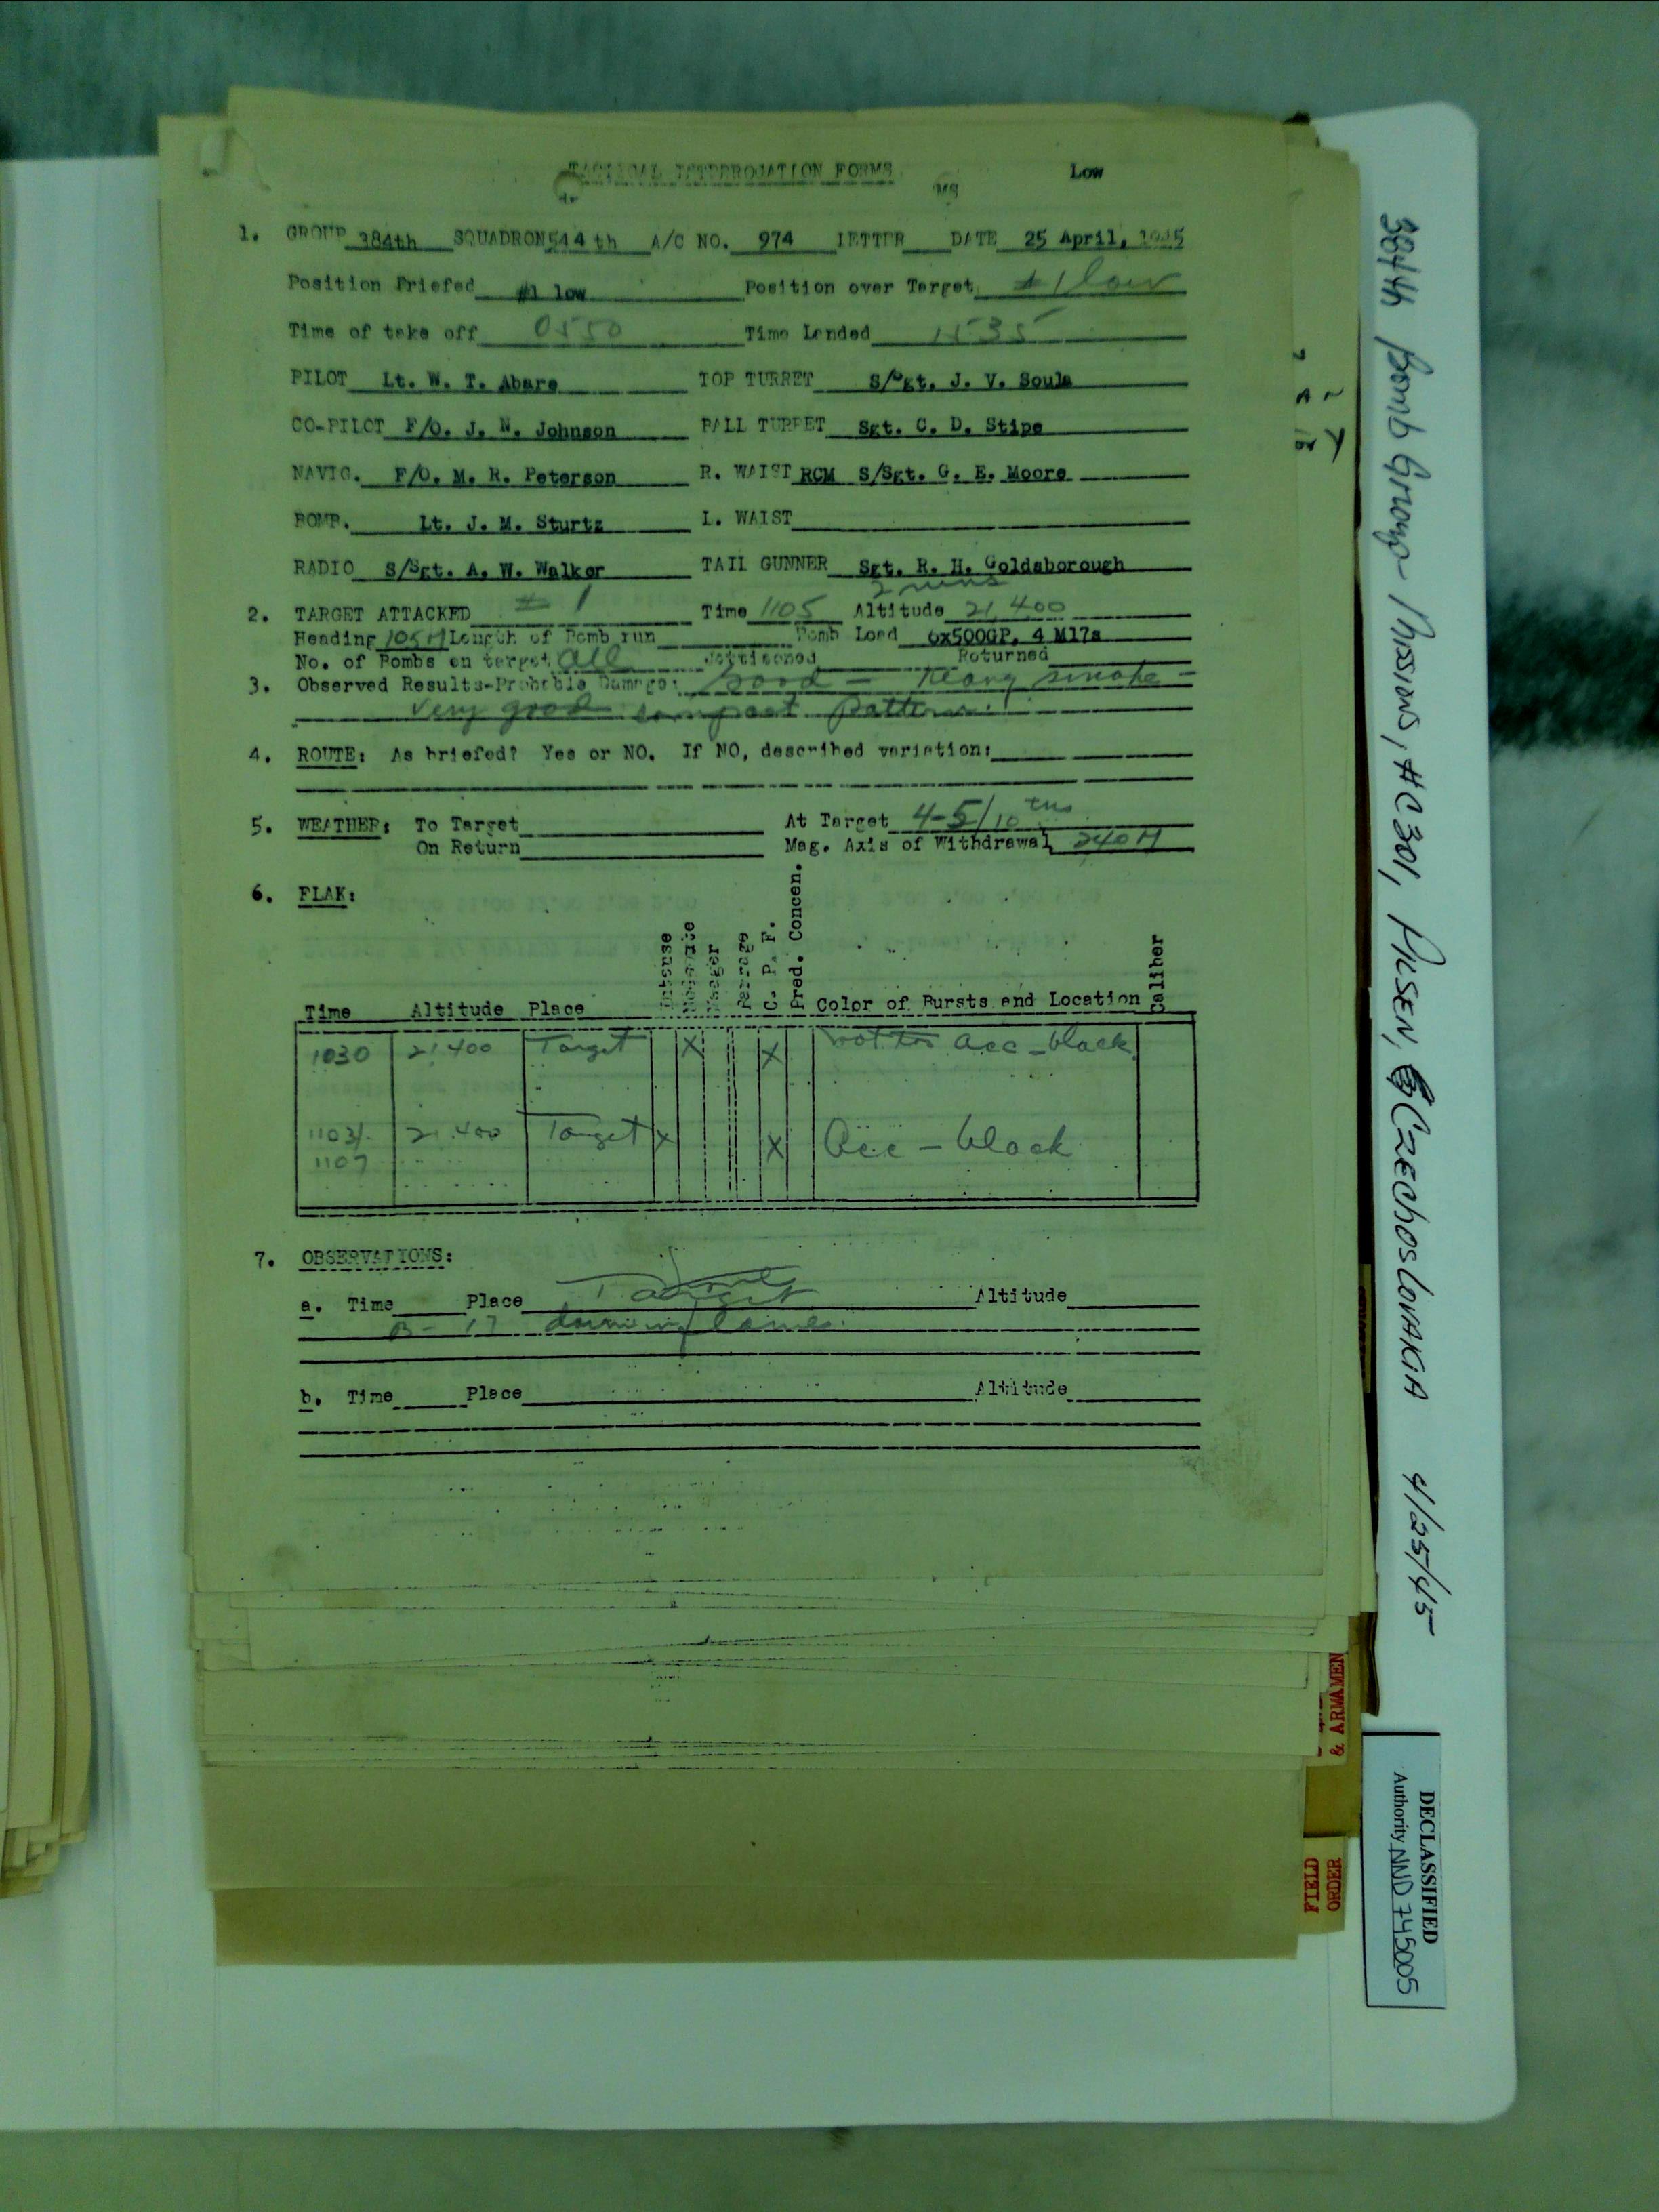 TACTICAL INTERROGATION FORMS Low
MS
1. GROUP 384th SQUADRON 544th A/C NO. 974 LETTER DATE 25 April, 1945
Position Briefed #1 low Position over Target #1 low
Time of take off 0550 Time Landed 1535
PILOT Lt. W. T. Abare TOP TURRET S/Sgt. J. V. Soula
CO-PILOT F/O. J. N. Johnson BALL TURRET Sgt. C. D. Stipe
NAVIG. F/O. M. R. Peterson R. WAIST RCM S/Sgt. G. E. Moore
BOMB. Lt. J. M. Sturtz L. WAIST
RADIO S/Sgt. A. W. Walker TAIL GUNNER Sgt. R. H. Goldsborough
2 runs
2. TARGET ATTACKED #1 Time 1105 Altitude 21,400
Heading 105M Length of Bomb run Bomb Load 6x500GP, 4 M17s
No. of Bombs on target all Jettisoned Returned
3. Observed Results-Probable Damage: Good - smoke -
very good compact pattern.
4. ROUTE: As briefed? Yes or NO. If NO, described variation:
5. WEATHER: To Target At Target 4-5/10 ths
On Return Mag. Axis of Withdrawal 240M
6. FLAK:
Time Altitude Place Intense Moderate Meager Barrage C. P. F. Pred. Concen. Color of Bursts and Location Caliber
1030 21400 Target X X not too acc - black
1103/ 21.400 Target X X Acc - black
1107
7. OBSERVATIONS:
a. Time Place Target Altitude
B-17 down in flames.
b. Time Place Altitude
384th Bomb Group Missions, #C301, PILSEN, CZECHOSLOVAKIA 4/25/45
& ARMAMEN
FIELD
ORDER
DECLASSIFIED
Authority NND 745005